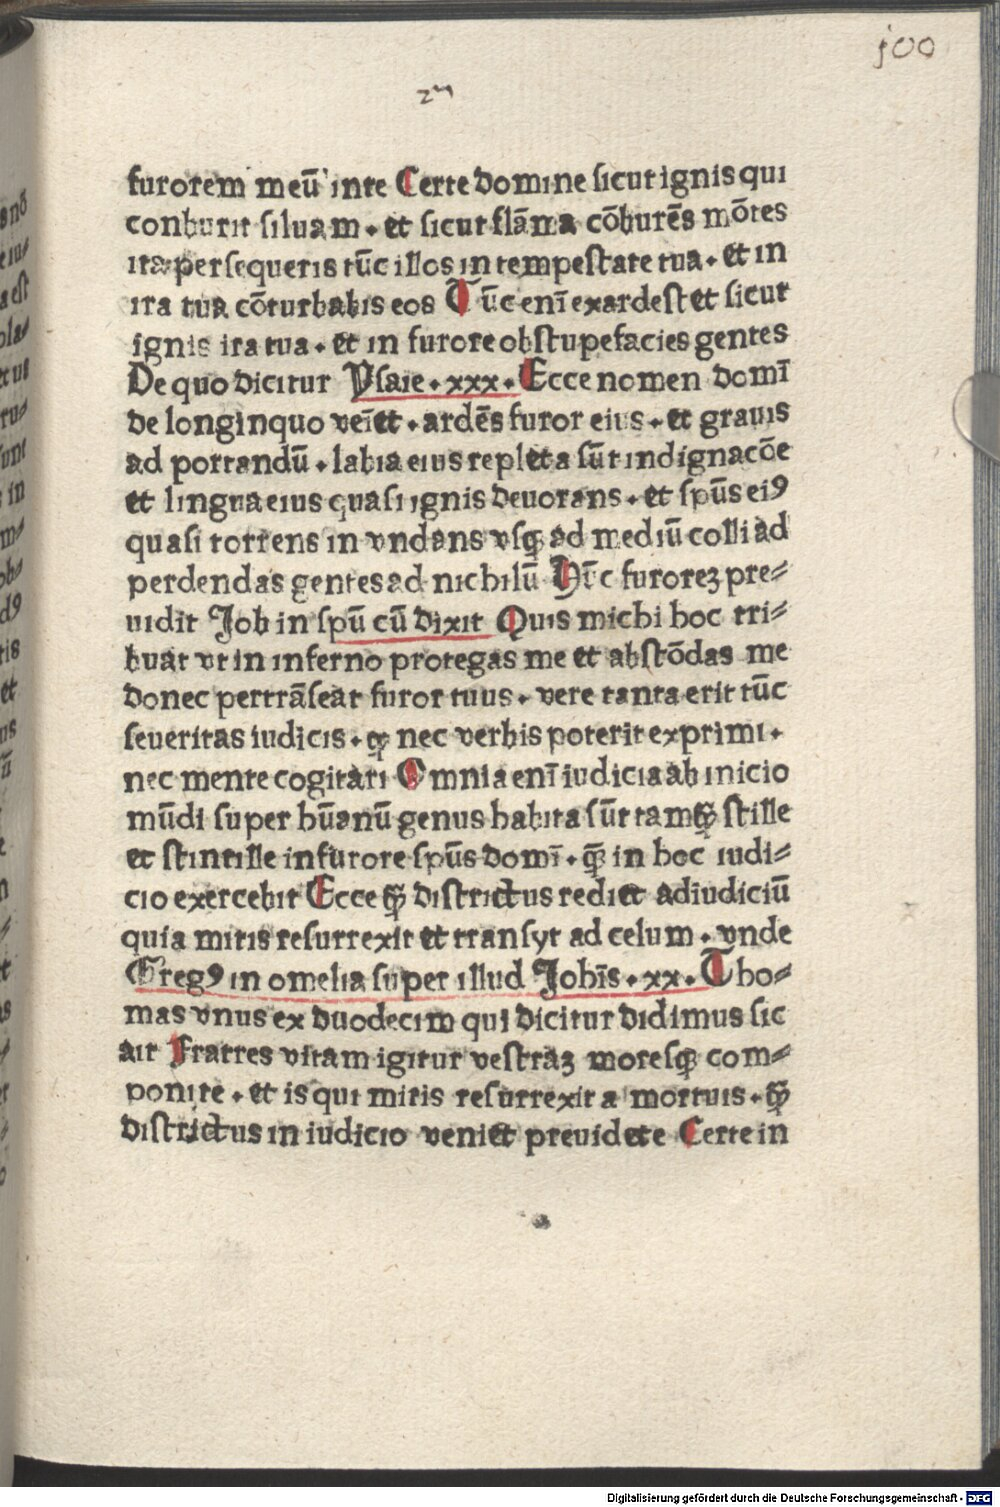 100
furorem meū inte Certe domine sicut ignis qui
conburit siluam . et sicut flāma cōburēs mōtes
ita persequeris tūc illos in tempestate tua . et in
ira tua cōturbabis eos Tūc enī exardest et sicut
ignis ira tua . et in furore obstupefacies gentes
De quo dicitur Ysaie . xxx . Ecce nomen domī
de longinquo veīet . ardēs furor eius . et grauis
ad portandū . labia eius repleta sūt indignacōe
et lingua eius quasi ignis deuorans . et spūs eiꝰ
quasi torrens in vndans vsqꝫ ad mediū colli ad
perdendas gentes ad nichilū Hūc furoreꝫ pre⸗
uidit Job in spū cū dixit Quis michi hoc tri⸗
buat vt in inferno protegas me et abscōdas me
donec pertrāseat furor tuus . vere tanta erit tūc
seueritas iudicis . ꝙ nec verbis poterit exprimi .
nec mente cogitari Omnia enī iudicia ab inicio
mūdi super hūanū genus habita sūt tamꝙ̄ stille
et stintille in furore spūs domī . ꝙ̄ in hoc iudi⸗
cio exercebit Ecce ꝙ̄ districtus rediet ad iudiciū
quia mitis resurrexit et transyt ad celum . vnde
Gregꝰ in omelia super illud Johīs . xx . Tho⸗
mas vnus ex duodecim qui dicitur didimus sic
ait Fratres vitam igitur vestraꝫ moresqꝫ com⸗
ponite . et is qui mitis resurrexit a mortuis . ꝙ̄
districtus in iudicio veniet preuidete Certe in
Digitalisierung gefördert durch die Deutsche Forschungsgemeinschaft - DFG